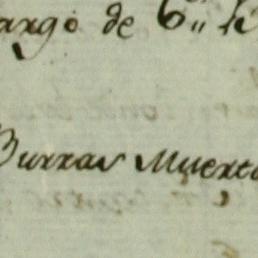 argo de 6,,
Burras Muerta